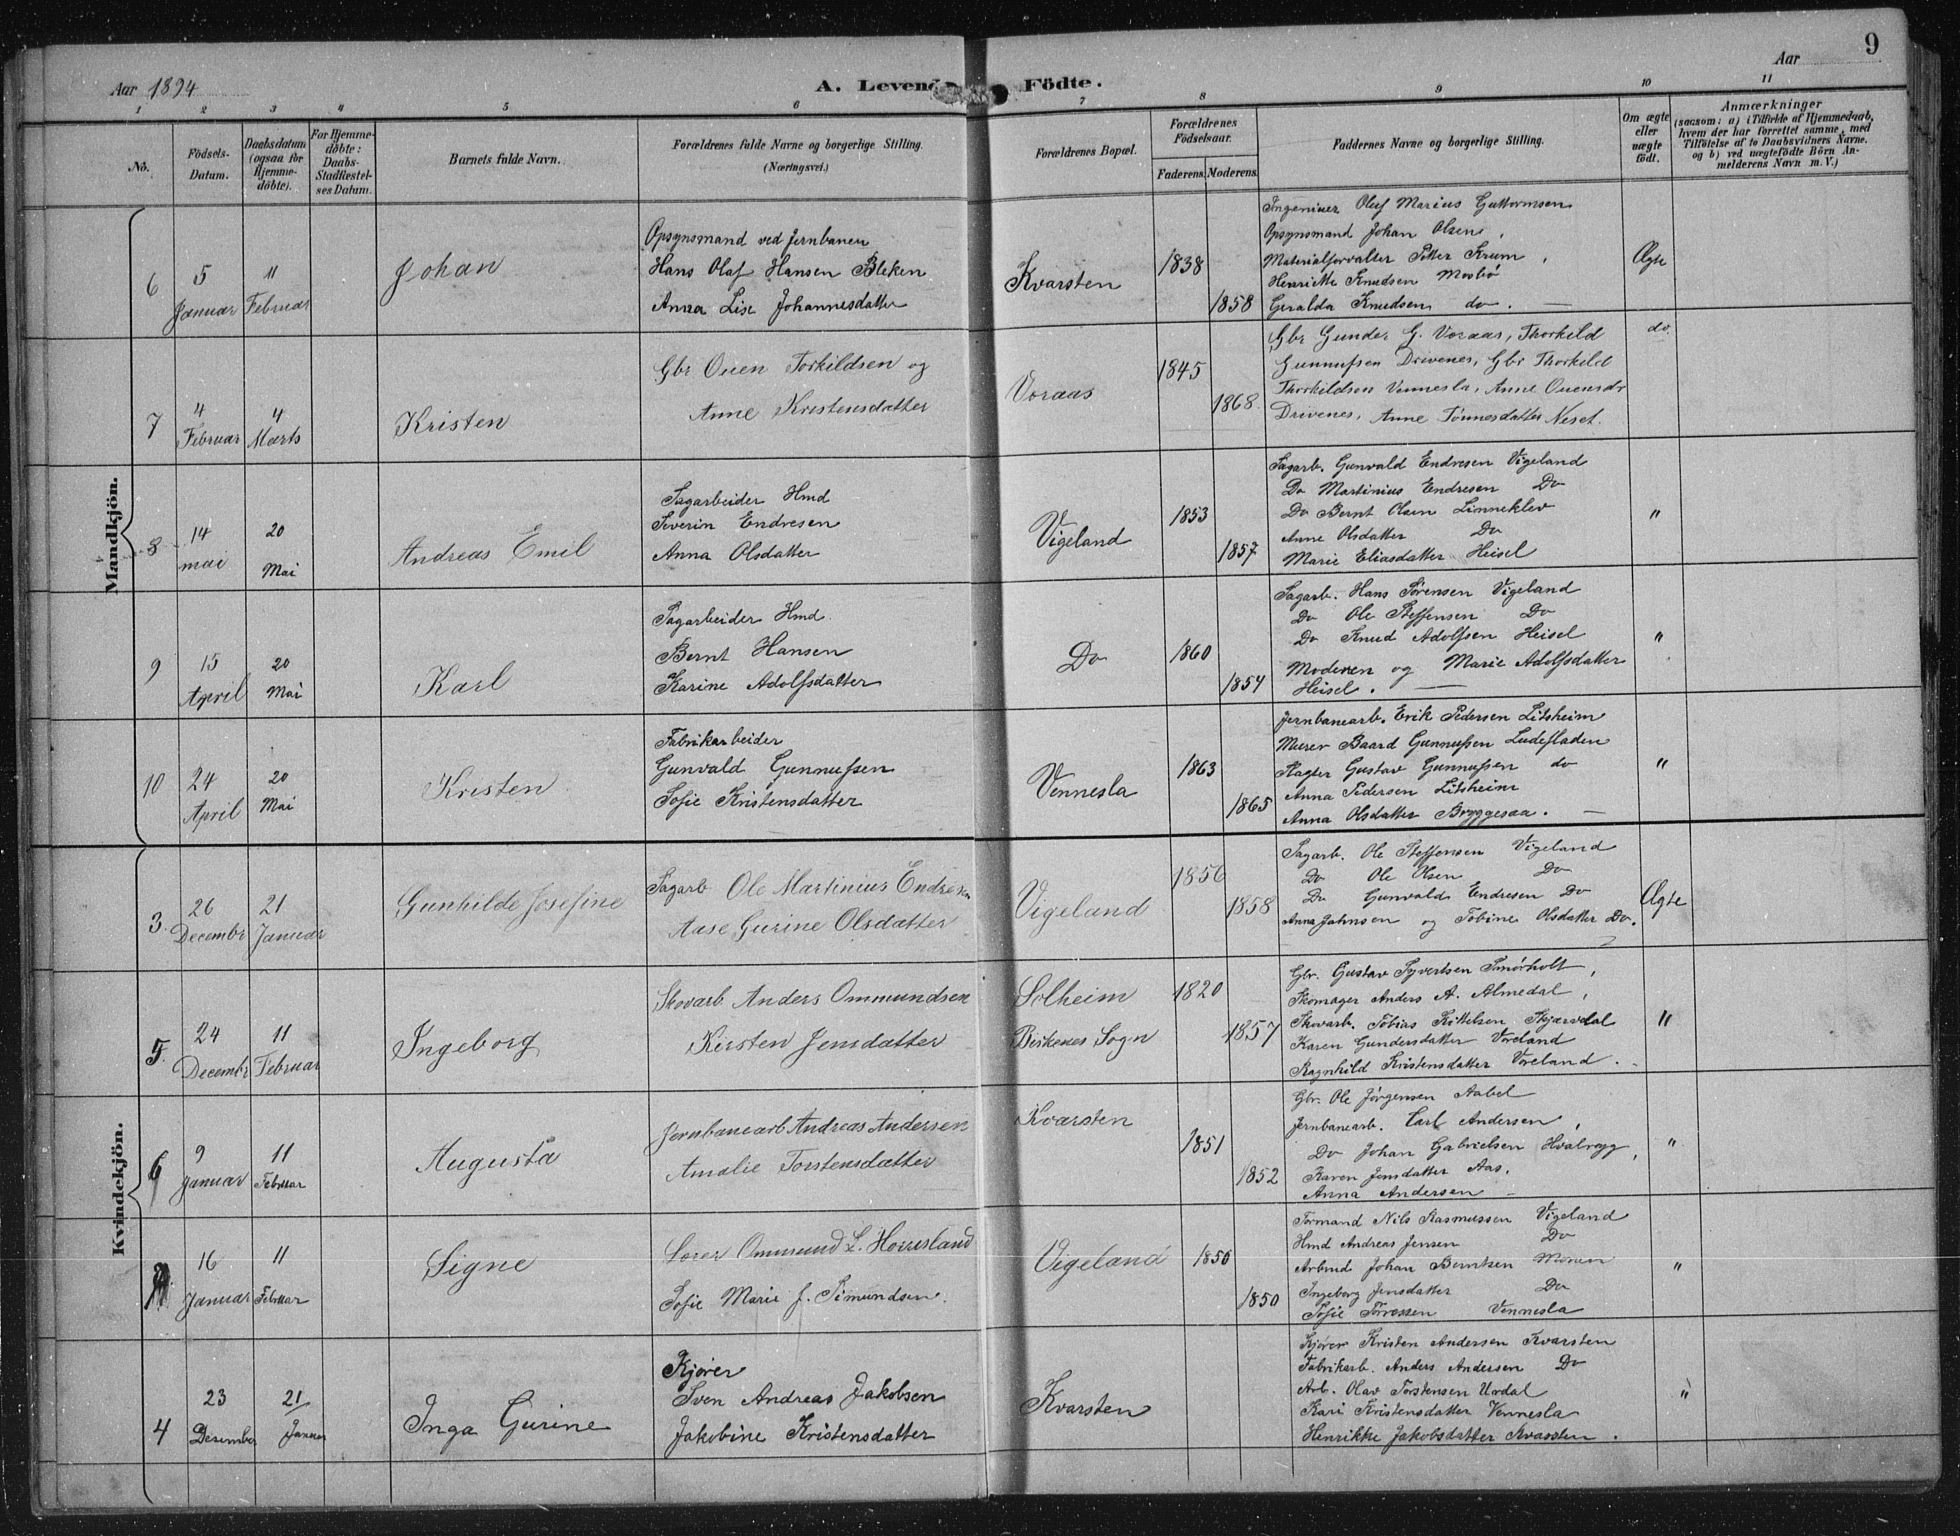 9
Aar 1894
A. Levende Födte.
Aar
1 2 3 4 5 6 7 8 9 10 11
No.
Födsels-
Datum.
Daabsdatum
(ogsaa for
Hjemme-
döbte).
For Hjemme-
döbte:
Daabs-
Stadfæstel-
ses Datum.
Barnets fulde Navn.
Forældrenes fulde Navne og borgerlige Stilling.
(Næringsvei.)
Forældrenes Bopæl.
Forældrenes
Födselsaar.
Faderens. Moderens.
Faddernes Navne og borgerlige Stilling.
Om ægte
eller
uægte
födt.
Anmærkninger
(saasom: a) i Tilfælde af Hjemmedaab,
hvem der har forrettet samme, med
Tilföielse af to Daabsvidners Navne.
og b) ved uægtefödte Börn An-
melderens Navn m. V.)
Mandkjön.
6
5
Januar
11
Februar
Johan
Opsynsmand ved Jernbanen
Hans Olaf Hansen Bleken
Anna Lise Johannesdatter
Kvarsten
1838
1858
Ingeniuer Oluf Marius Guttormsen
Opsynsmand Johan Olsen,
Materialforvalter Petter Krum,
Henriette Knudsen Mosbö
Geralda Knudsen do. —
Ægte
7
4
Februar
4
Marts
Kristen
Gbr Ouen Torkildsen og
Anne Kristensdatter
Voraas
1845
1868
Gbr Gunder G. Voraas, Thorkeld
Gunnufsen Drivenes, Gbr Thorkeld
Thorkildsen Vennesla, Anne Ouensdr
Drivenes, Anne Tönnesdatter Neset.
do.
8
14
mai
20
Mai
Andreas Emil
Sagarbeider Hmd
Severin Endresen
Anna Olsdatter
Vigeland
1853
1857
Sagarb. Gunvald Endresen Vigeland
Do Martinius Endresen Do
Do Bernt Olsen Linneklev
Anne Olsdatter Do
Marie Eliasdatter Heisel
"
9
15
April
20
Mai
Karl
Sagarbeider Hmd
Bernt Hansen
Karine Adolfsdatter
Do
1860
1854
Sagarb. Hans Sörensen Vigeland
Do Ole Steffensen Do
Do Knud Adolfsen Heisel
Moderen og Marie Adolfsdatter
Heisel. —
"
10
24
April
20
Mai
Kristen
Fabrikarbeider
Gunvald Gunnufsen
Sofie Kristensdatter
Vennesla
1863
1865
Jernbanearb. Erik Pedersen Litsheim
Murer Baard Gunnufsen Ludefladen
Slagter Gustav Gunnufsen do
Anna Pedersen Litsheim
Anna Olsdatter Bryggesaa. —
"
Kvindekjön.
3.
26
Decembr
21
Januar
Gunhilde Josefine
Sagarb Ole Martinius Endresen
Aase Gurine Olsdatter
Vigeland
1856
1858
Sagarb. Ole Steffensen Vigeland
Do Ole Olsen Do
Do Gunvald Endresen Do
Anna Jahnsen og Tobine Olsdatter Do.
Ægte
5.
24
Decembr
11
Februar
Ingeborg
Skovarb Anders Ommundsen
Kirsten Jensdatter
Solheim
Birkenes Sogn
1820
1857
Gbr. Gustav Syvertsen Smörholt,
Skomager Anders A. Almedal,
Skovarb. Tobias Kittelsen Skjærdal
Karen Gundersdatter Voreland
Ragnhild Kristensdatter Voreland.
"
6
9
Januar
11
Februar
Augusta
Jernbanearb Andreas Andersen
Amalie Torstensdatter
Kvarsten
1851
1852
Gbr. Ole Jörgensen Aabel
Jernbanearb. Carl Andersen,
Do Johan Gabrielsen Hvalrygg,
Karen Jensdatter Aas,
Anna Andersen —
"
16
Januar
11
Februar
Signe
Ommund L. Horrisland
Sofie Marie J. Simundsen.
Vigeland
1850
1850
Formand Nils Rasmussen Vigeland
Hmd Andreas Jensen Do
Arbmd Johan Berntsen Moren
Ingeborg Jensdatter Do
Sofie Torressen Vennesla
"
4
23
Desember
21
Januar
Inga Gurine
Kjörer
Sven Andreas Jakobsen
Jakobine Kristensdatter
Kvarsten
Kjörer Kristen Andersen Kvarsten
Fabrikarb. Anders Andersen Do
Arb. Olav Torstensen Urdal
Kari Kristensdatter Vennesla
Henrikke Jakobsdatter Kvarsten.
"